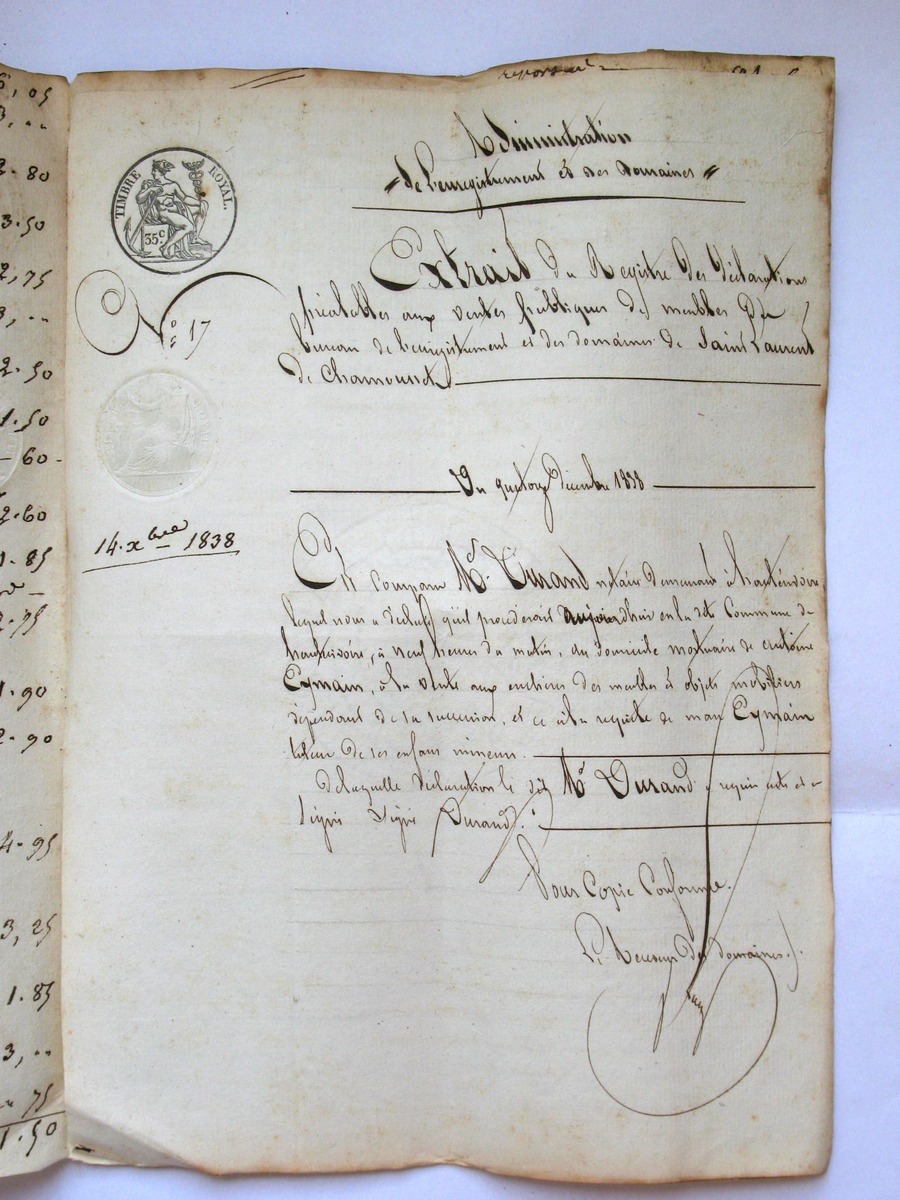 6,05
3,..
2.80
3.50
2,75
3,..
2.50
1.50
60.
2.60
1.85
2.75
1.90
2.90
4.95
3,25
1.85
3,..
75
1.50
report
TIMBRE ROYAL.
35 c.
Administration
"de l'enregistrement et des domaines"
Extrait du Registre des déclarations
préalables aux ventes publiques de meubles
bureau de l'enregistrement et des domaines de Saint Laurent
de Chamousset
N.o 17
Du quatorze Décembre 1838
14. xbre 1838
Est comparu Me. Durand notaire demeurant à
lequel nous a déclaré qu'il procéderait aujourdhui en la dite Commune de
à neuf heures du matin, au domicile mortuaire de antoine
Eymain, à la vente aux enchères des meubles et objets mobiliers
dépendant de sa succession, et ce à la requête de Eymain
tuteur de ses enfans mineurs.
de laquelle déclaration le dit Me Durand a requis acte et a
signé Signé Durand.
Pour Copie Conforme.
Le Receveur des domaines.